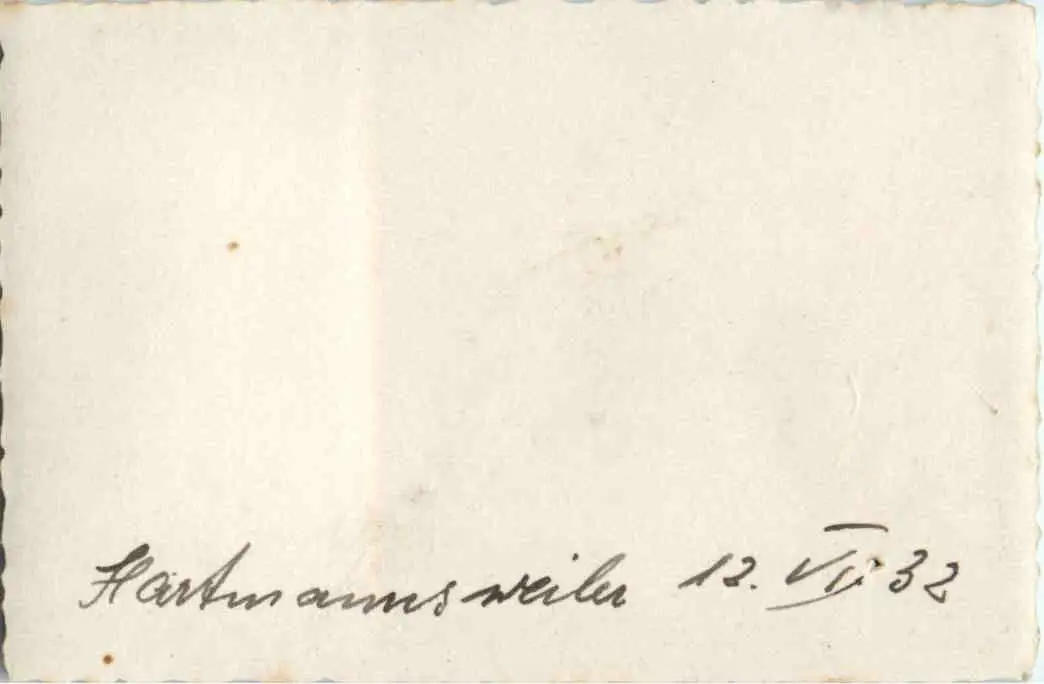 Hartmannsweiler 12. VI. 32